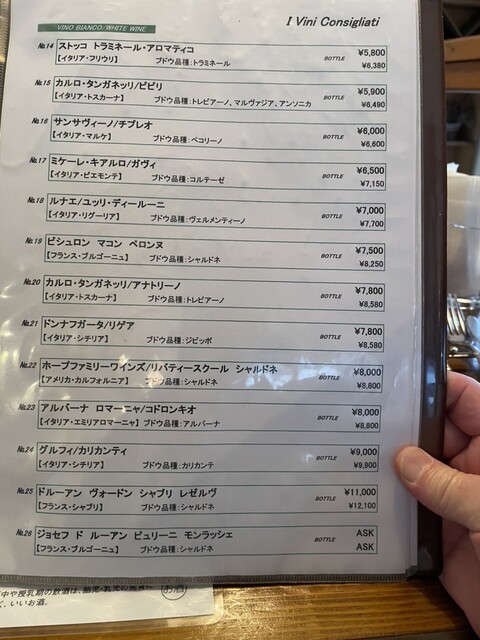 I Vini Consigliati
VINO BIANCO/WHITE WINE
No.14 ストッコ トラミネール・アロマティコ BOTTLE ¥5,800
【イタリア・フリウリ】 ブドウ品種:トラミネール ¥6,380
No.15 カルロ・タンガネッリ/ビビリ BOTTLE ¥5,900
【イタリア・トスカーナ】 ブドウ品種:トレビアーノ、マルヴァジア、アンソニカ ¥6,490
No.16 サンサヴィーノ/チプレオ BOTTLE ¥6,000
【イタリア・マルケ】 ブドウ品種:ペコリーノ ¥6,600
No.17 ミケーレ・キアルロ/ガヴィ BOTTLE ¥6,500
【イタリア・ピエモンテ】 ブドウ品種:コルテーゼ ¥7,150
No.18 ルナエ/ユッリ・ディールーニ BOTTLE ¥7,000
【イタリア・リグーリア】 ブドウ品種:ヴェルメンティーノ ¥7,700
No.19 ビシュロン マコン ペロンヌ BOTTLE ¥7,500
【フランス・ブルゴーニュ】 ブドウ品種:シャルドネ ¥8,250
No.20 カルロ・タンガネッリ/アナトリーノ BOTTLE ¥7,800
【イタリア・トスカーナ】 ブドウ品種:トレビアーノ ¥8,580
No.21 ドンナフガータ/リゲア BOTTLE ¥7,800
【イタリア・シチリア】 ブドウ品種:ジビッボ ¥8,580
No.22 ホープファミリーワインズ/リバティースクール シャルドネ BOTTLE ¥8,000
【アメリカ・カルフォルニア】 ブドウ品種:シャルドネ ¥8,800
No.23 アルバーナ ロマーニャ/コドロンキオ BOTTLE ¥8,000
【イタリア・エミリアロマーニャ】 ブドウ品種:アルバーナ ¥8,800
No.24 グルフィ/カリカンティ BOTTLE ¥9,000
【イタリア・シチリア】 ブドウ品種:カリカンテ ¥9,900
No.25 ドルーアン ヴォードン シャブリ レゼルヴ BOTTLE ¥11,000
【フランス・シャブリ】 ブドウ品種:シャルドネ ¥12,100
No.26 ジョセフ ド ルーアン ピュリーニ モンラッシェ BOTTLE ASK
【フランス・ブルゴーニュ】 ブドウ品種:シャルドネ ASK
中や授乳期の飲酒は、胎児・乳児の発育に お酒
く、いいお酒。